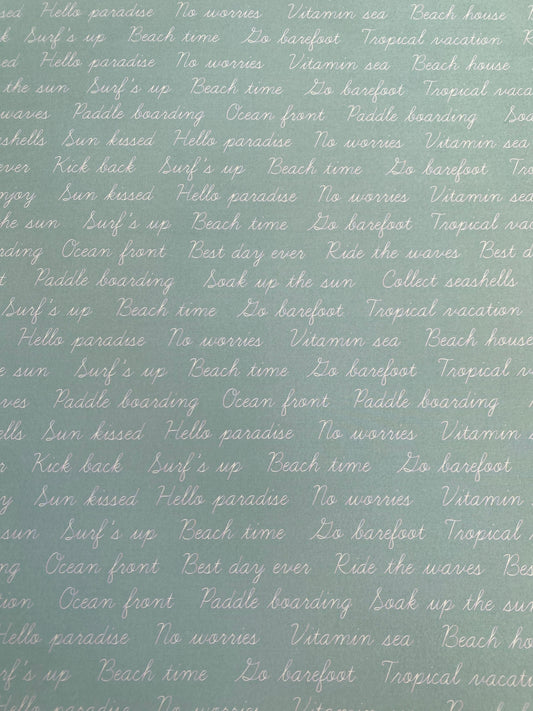 sed Hello paradise No worries Vitamin sea Beach house
k Surf's up Beach time Go barefoot Tropical vacation
ed Hello paradise No worries Vitamin sea Beach house
the sun Surf's up Beach time Go barefoot Tropical vaca
waves Paddle boarding Ocean front Paddle boarding Soa
ashells Sun kissed Hello paradise No worries Vitamin sea
ever Kick back Surf's up Beach time Go barefoot Tro
njoy Sun kissed Hello paradise No worries Vitamin sea
the sun Surf's up Beach time Go barefoot Tropical vac
arding Ocean front Best day ever Ride the waves Best d
t Paddle boarding Soak up the sun Collect seashells
Surf's up Beach time Go barefoot Tropical vacation
Hello paradise No worries Vitamin sea Beach house
e sun Surf's up Beach time Go barefoot Tropical v
ves Paddle boarding Ocean front Paddle boarding
ells Sun kissed Hello paradise No worries Vitamin s
r Kick back Surf's up Beach time Go barefoot
y Sun kissed Hello paradise No worries Vitamin
sun Surf's up Beach time Go barefoot Tropical
ng Ocean front Best day ever Ride the waves Bes
ion Ocean front Paddle boarding Soak up the sun
Hello paradise No worries Vitamin sea Beach ho
rf's up Beach time Go barefoot Tropical vacati
Hello paradise No worries Vitamin sea